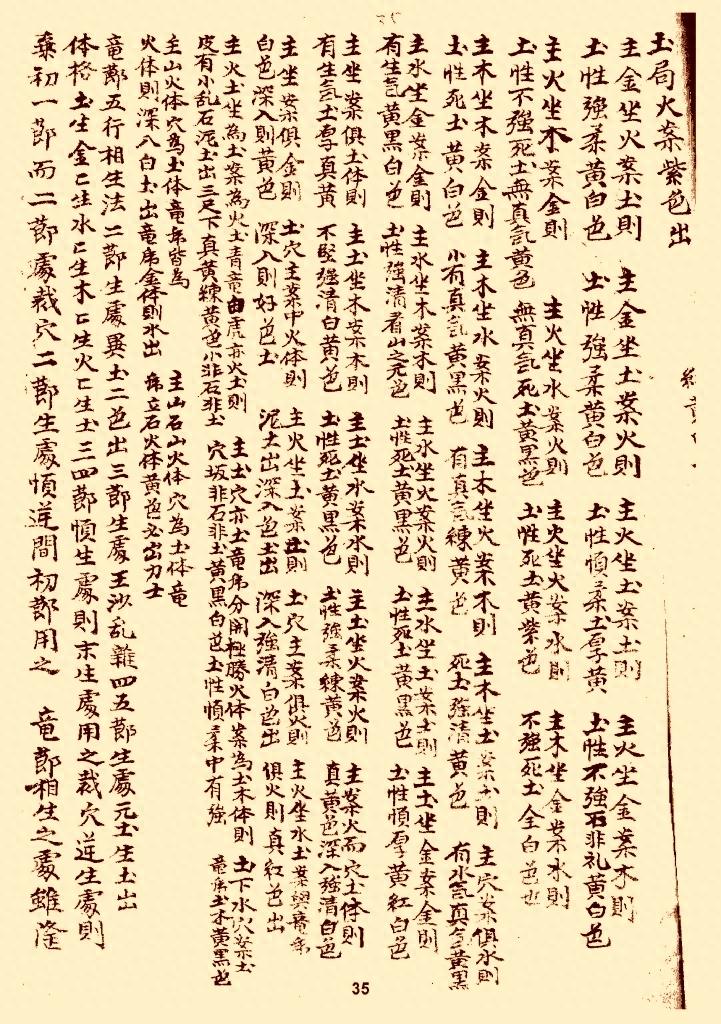 土局火案紫色出
主金坐火案土則 主金坐土案火則 主火坐土案土則 主火坐金案木則
土性強柔黃白色 土性強柔黃白色 土性慎柔土厚黃 土性不強石非礼黃白色
主火坐木案金則 主火坐水案火則 主火坐火案水則 主木坐金案水則
土性不強死土無真氣黃色 無真氣死土黃黑色 土性死土黃紫色 不強死土全白色也
主木坐木案金則 主木坐水案火則 主木坐火案木則 主木坐土案土則 主穴案俱水則
土性死土黃白色 小有真氣黃黑色 有真氣練黃色 死土強清黃色 有水氣真氣黃黑
主水坐金案金則 主水坐木案木則 主水坐火案火則 主水坐土案土則 主土坐金案金則
有生氣黃黑白色 土性強清看山之元色 土性死土黃黑色 土性死土黃黑色 土性慎厚黃紅白色
主坐案俱土体則 主土坐木案木則 主土坐水案水則 主土坐火案火則 主案火而穴土体則
有生气土厚真黃 不堅強清白黃色 土性死土黃黑色 土性強柔練黃色 真黃色深入強清白色
主坐案俱金則 土穴主案中火体則 主火坐土案土則 土穴主案俱火則 主火坐水土案竜席
白色深入則黃色 深入則好色土 泥土出深入色土出 深入強清白色出 俱火則真紅色出
主火土坐為土案為火土青竜白虎亦火土則 主土穴亦土竜席分開極勝火体案為土木体則 土下水穴案土
皮有小乱石泥土出三尺下真黃練黃色小非石非土 穴坂非石非土黃黑白色土性慎柔中有強 竜席土木黃黑色
主山火体穴為土体竜席皆為 主山石山火体穴為土体竜
火体則深八白土出竜席金体則水出 席立石火体黃色必出力士
竜節五行相生法二節生處異土二色出三節生處王沙乱雜四五節生處元土生土出
体格土生金匕生水匕生木匕生火匕生土三四節慎生處則末生處用之裁穴逆生處則
案初一節而二節處裁穴二節生處慎逆間初節用之 竜節相生之處雖隆
35